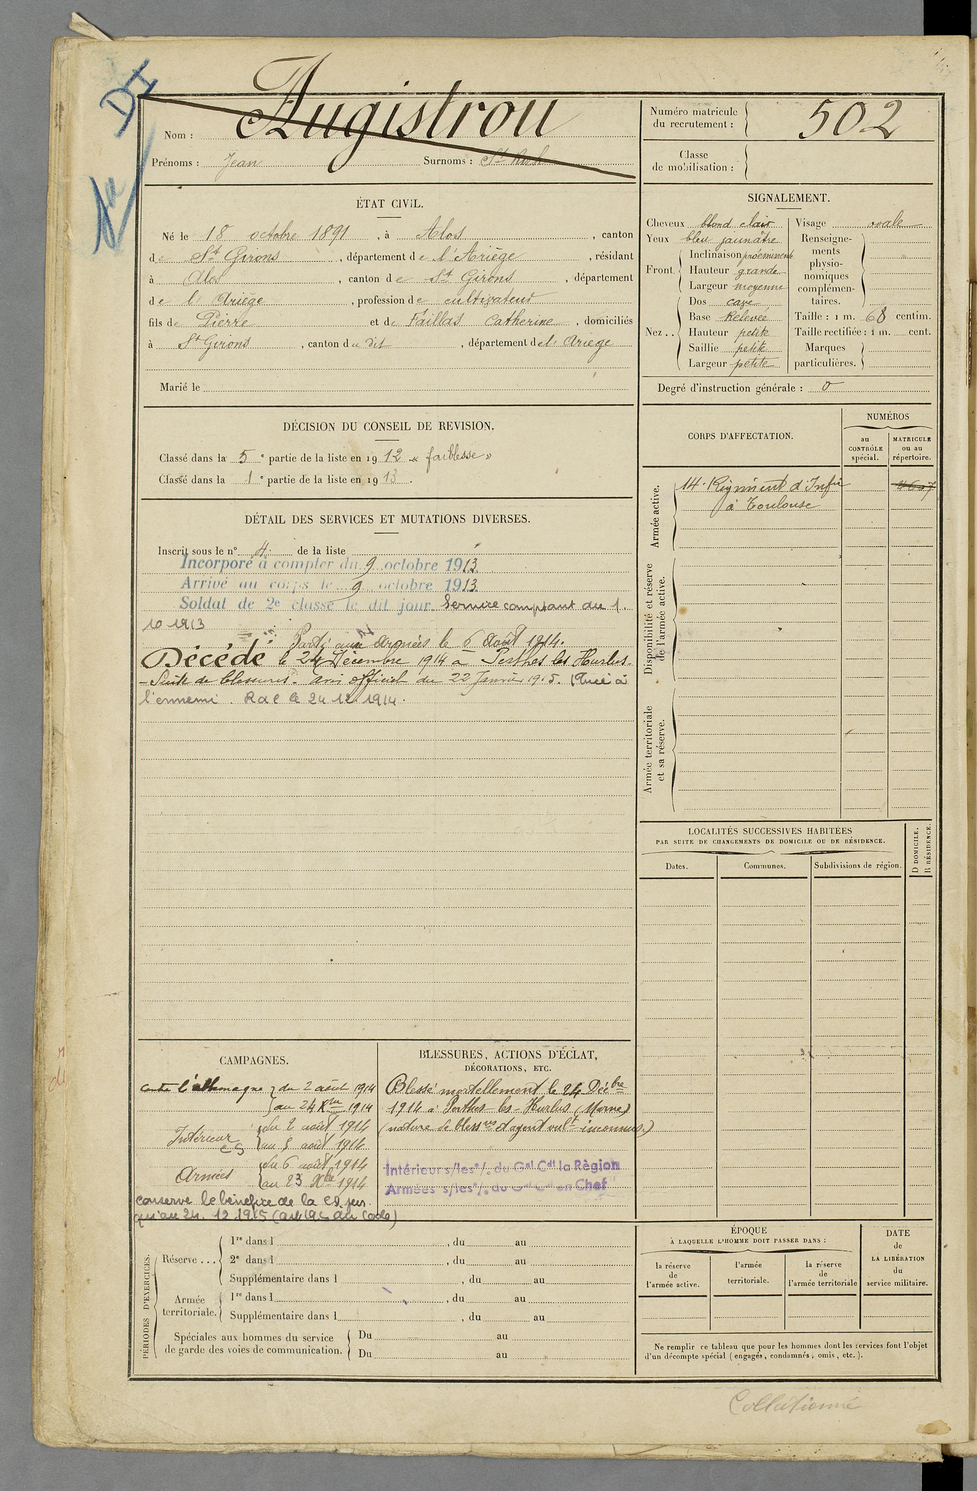 DI
Nom : Augistrou
Prénoms : Jean Surnoms :
Numéro matricule du recrutement : 502
Classe de mobilisation :
ÉTAT CIVIL.
Né le 18 octobre 1891, à Alos, canton
de St Girons, département de l'Ariège, résidant
à Alos, canton de St Girons, département
de l'Ariège, profession de cultivateur
fils de Pierre et de Faillas Catherine, domiciliés
à St Girons, canton du dit, département de l'Ariège
Marié le
SIGNALEMENT.
Cheveux blond clair
Yeux bleu jaunâtre
Front. Inclinaison proéminente
Hauteur grande
Largeur moyenne
Nez . . Dos cave
Base Relevée
Hauteur petite
Saillie petite
Largeur petite
Visage ovale
Renseignements physionomiques complémentaires.
Taille : 1 m. 68 centim.
Taille rectifiée : 1 m. cent.
Marques particulières.
Degré d'instruction générale : 0
DÉCISION DU CONSEIL DE REVISION.
Classé dans la 5e partie de la liste en 1912 « faiblesse »
Classé dans la 1e partie de la liste en 1913.
DÉTAIL DES SERVICES ET MUTATIONS DIVERSES.
Inscrit sous le n° 4 de la liste
Incorporé à compter du 9 octobre 1913
Arrivé au corps le 9 octobre 1913
Soldat de 2e classe le dit jour. Service comptant du 1.
10 1913
Parti aux armées le 6 août 1914.
Décédé le 24 Décembre 1914 à Perthes les Hurlus.
- Suite de blessures. avis officiel du 22 Janvier 1915. (Tué à
l'ennemi. Rdl le 24 12 1914.
CORPS D'AFFECTATION.
NUMÉROS
au CONTRÔLE spécial.
MATRICULE ou au répertoire.
Armée active.
14e Régiment d'Infie
à Toulouse
Disponibilité et réserve de l'armée active.
Armée territoriale et sa réserve.
LOCALITÉS SUCCESSIVES HABITÉES
PAR SUITE DE CHANGEMENTS DE DOMICILE OU DE RÉSIDENCE.
Dates.
Communes.
Subdivisions de région.
D DOMICILE.
R RÉSIDENCE.
CAMPAGNES.
contre l'allemagne du 2 août 1914
au 24 Xbre 1914
Intérieur CS du 2 août 1914
au 5 août 1914
Armées du 6 août 1914
au 23 Xbre 1914
conserve le bénéfice de la CD jus
qu'au 24. 12 1915 (art 19c du code)
BLESSURES, ACTIONS D'ÉCLAT,
DÉCORATIONS, ETC.
Blessé mortellement le 24 Décbre
1914 à Perthes-les-Hurlus (Marne)
(nature de blessres et agent vulnt inconnus.)
Intérieur s/les o/. du Gal Cdt la Règion
Armées s/les o/. du Gal Cdt en Chef
PÉRIODES D'EXERCICES.
Réserve . . .
1re dans l , du au
2e dans l , du au
Supplémentaire dans l , du au
Armée territoriale.
1re dans l , du au
Supplémentaire dans l , du au
Spéciales aux hommes du service
de garde des voies de communication.
Du au
Du au
ÉPOQUE
À LAQUELLE L'HOMME DOIT PASSER DANS :
la réserve de l'armée active.
l'armée territoriale.
la réserve de l'armée territoriale
DATE de LA LIBÉRATION du service militaire.
Ne remplir ce tableau que pour les hommes dont les services font l'objet
d'un décompte spécial (engagés, condamnés, omis, etc.).
Collationné